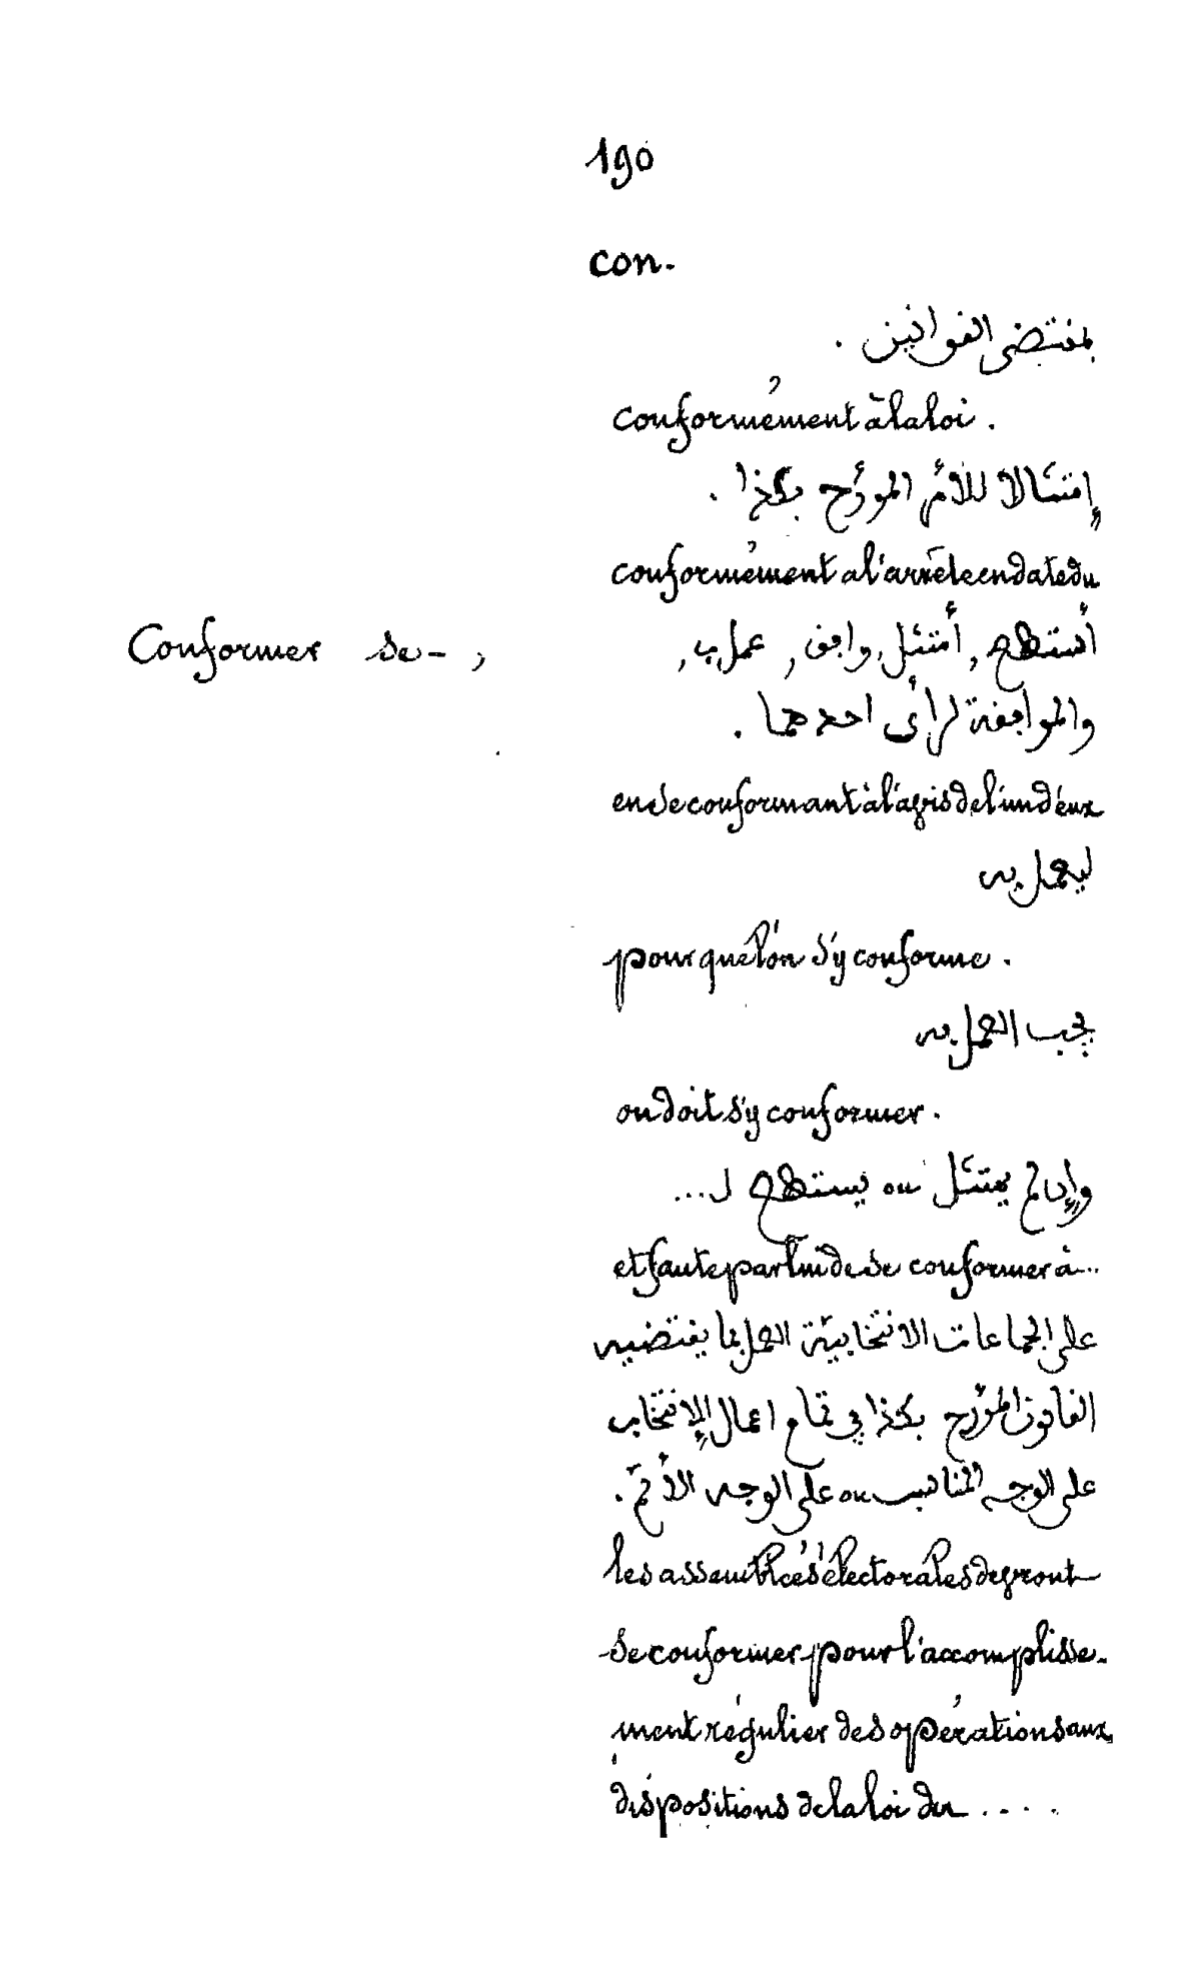 190
con.
بمقتضى القوانين .
conformément à la loi .
إمتثالا للأمر المؤرّخ بكذا .
conformément a l'arrêté en date du
Conformer se - , أستطح , أمتثل , وافق , عمل ب ,
والموافقة لرأى احدهما .
en se conformant à l'avis de l'un d'eux
ليعمل به
pour que l'on s'y conforme .
يجب العمل به
on doit s'y conformer .
وإن لم يمتثل ou يستطح ل ...
et faute par lui de se conformer à ...
على الجماعات الانتخابيّة العمل بما يقتضيه
القانون المؤرّخ بكذا في تمام اعمال الإنتخاب
على الوجه المناسب ou على الوجه الأتمّ .
les assemblées électorales devront
se conformer pour l'accomplisse-
ment régulier des opérations aux
dispositions de la loi du . . . .